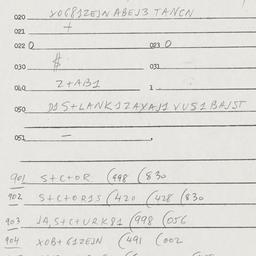 020 YO681ZEJN ABEJ3 TANCN
021 +
022 0 023 0
030 # 031
040 Z+AB1 1
050 D1S+LANK1ZAYAJ1 VUS1 BAJST
051 -
901 S+C+OR (498 (830
902 S+C+OR1S (420 (428 (830
903 JA,S+C+URK81 (998 (056
904 XOB+61ZEJN (491 (002